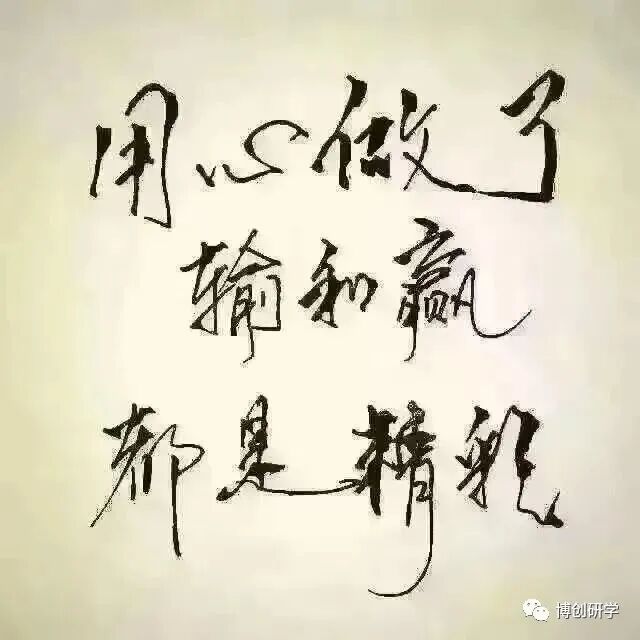 用心做了
输和赢
都是精彩
博创研学